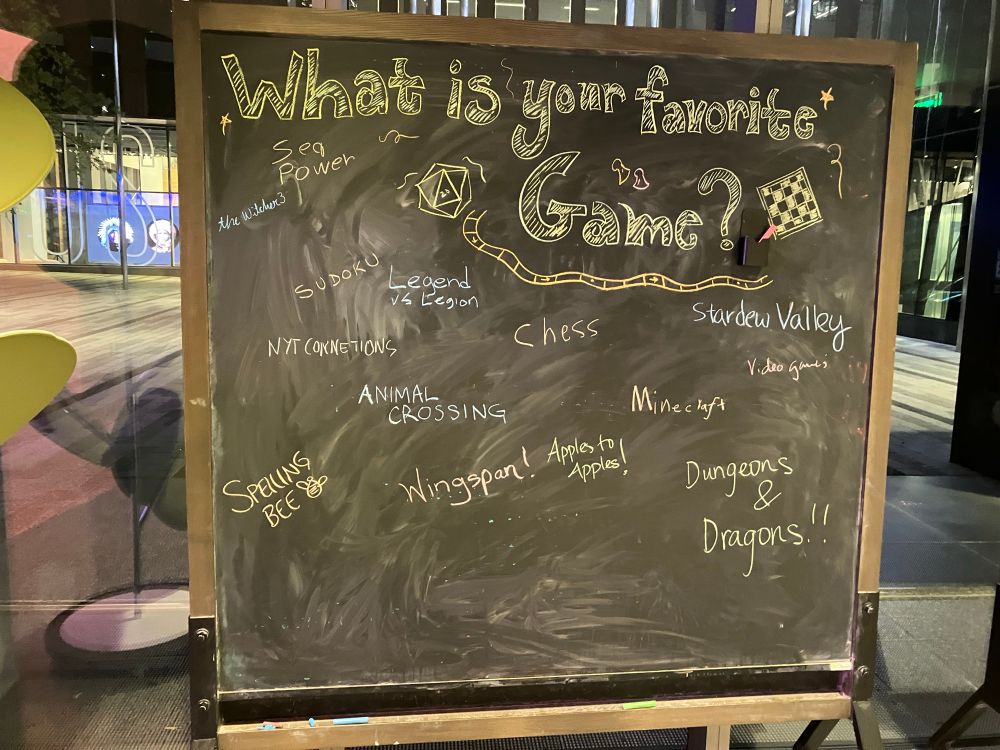 What is your favorite
Game?
Seq
Power
the Witcher 3
SUDOKU
Legend
vs Legion
Chess
Stardew Valley
NYT CONNETIONS
Video games
ANIMAL
CROSSING
Minecraft
Apples to
Apples!
SPELLING
BEE
Wingspan!
Dungeons
&
Dragons!!